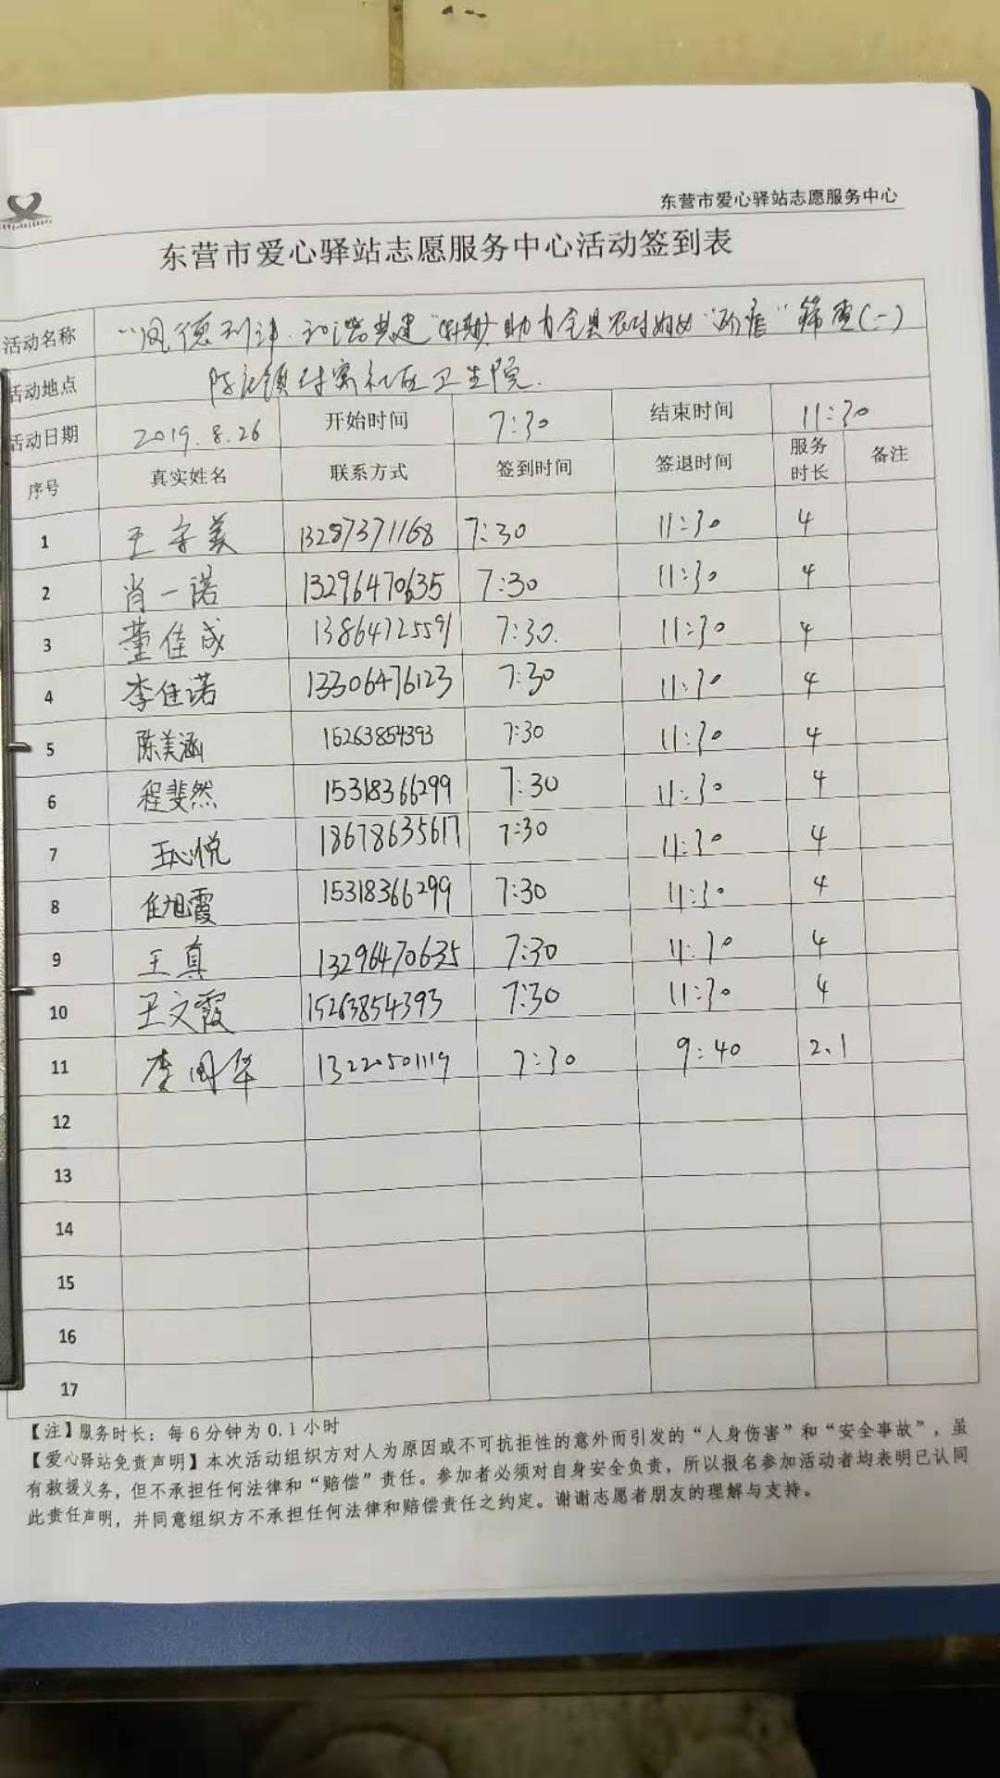 东营市爱心驿站志愿服务中心
东营市爱心驿站志愿服务中心活动签到表
活动名称 "凤德利津·和谐共建" 助力全县农村妇女"两癌"筛查(一)
活动地点 村 社区卫生院.
活动日期 2019.8.26 开始时间 7:30 结束时间 11:30
序号 真实姓名 联系方式 签到时间 签退时间 服务时长 备注
1 王守美 13287371168 7:30 11:30 4
2 肖一诺 13296470635 7:30 11:30 4
3 董佳成 13864725591 7:30. 11:30 4
4 李佳诺 13306476123 7:30 11:30 4
5 陈美涵 15263854393 7:30 11:30 4
6 程斐然 15318366299 7:30 11:30 4
7 王心悦 18678635617 7:30 11:30 4
8 任旭霞 15318366299 7:30 11:30 4
9 王真 13296470635 7:30 11:30 4
10 王文霞 15263854393 7:30 11:30 4
11 李国华 13220501119 7:30 9:40 2.1
12
13
14
15
16
17
【注】服务时长：每6分钟为0.1小时
【爱心驿站免责声明】本次活动组织方对人为原因或不可抗拒性的意外而引发的“人身伤害”和“安全事故”，虽
有救援义务，但不承担任何法律和“赔偿”责任。参加者必须对自身安全负责，所以报名参加活动者均表明已认同
此责任声明，并同意组织方不承担任何法律和赔偿责任之约定。谢谢志愿者朋友的理解与支持。